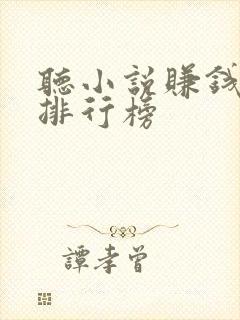 聽小説賺錢
排行榜
譚孝曾